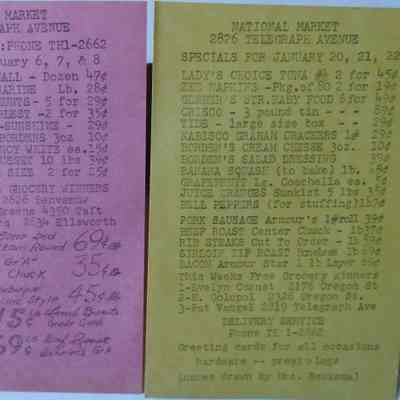 MARKET
APH AVENUE
:PHONE TH1-2662
uary 6, 7, & 8
ALL - Dozen 47¢
ARINE Lb. 28¢
UNTS- 5 for 29¢
RLIEST -2 for 35¢
-SUNSHINE - 29¢
ORDENS 3oz 10¢
NCY WHITE ea.15¢
USSET 10 lbs 39¢
SIZE 2 for 25¢
GROCERY WINNERS
2626 Benvenue
Greene 4350 Taft
2634 Ellsworth
69¢
Gr A
Chuck 35¢
Style 45¢
15¢ Land
59¢ Beef Roast
NATIONAL MARKET
2876 TELEGRAPH AVENUE
SPECIALS FOR JANUARY 20, 21, 22
LADY'S CHOICE TUNA #½ 2 for 45¢
ZEE NAPKINS -Pkg.of 80 2 for 19¢
GERBER'S STR.BABY FOOD 6 for 49¢
CRISCO - 3 pound tin - - - 83¢
TIDE - large size box - - 29¢
NABISCO GRAHAM CRACKERS 1# 29¢
BORDEN'S CREAM CHESSE 3oz. 10¢
BORDEN'S SALAD DRESSING 39¢
BANANA SQUASH (to bake) lb.
GRAPEFRUIT lg. Coachella ea.
JUICE ORANGES Sunkist 5 lbs 35¢
BELL PEPPERS (for stuffing)lb
PORK SAUSAGE Armour's 1#roll 39¢
BEEF ROAST Center Chuck - lb37¢
RIB STEAKS Cut To Order - lb 59¢
SIRLOIN TIP ROAST Boneless lb
BACON Armour Star 1 lb Layer
This Weeks Free Grocery Winners
1-Evelyn 2176 Oregon St
2-M. 2326 Oregon St.
3-Pat Vangel 2819 Telegraph Ave
DELIVERY SERVICE
Phone TH 1-2662
Greeting cards for all occasions
hardware -- presto logs
(names drawn by Mrs.